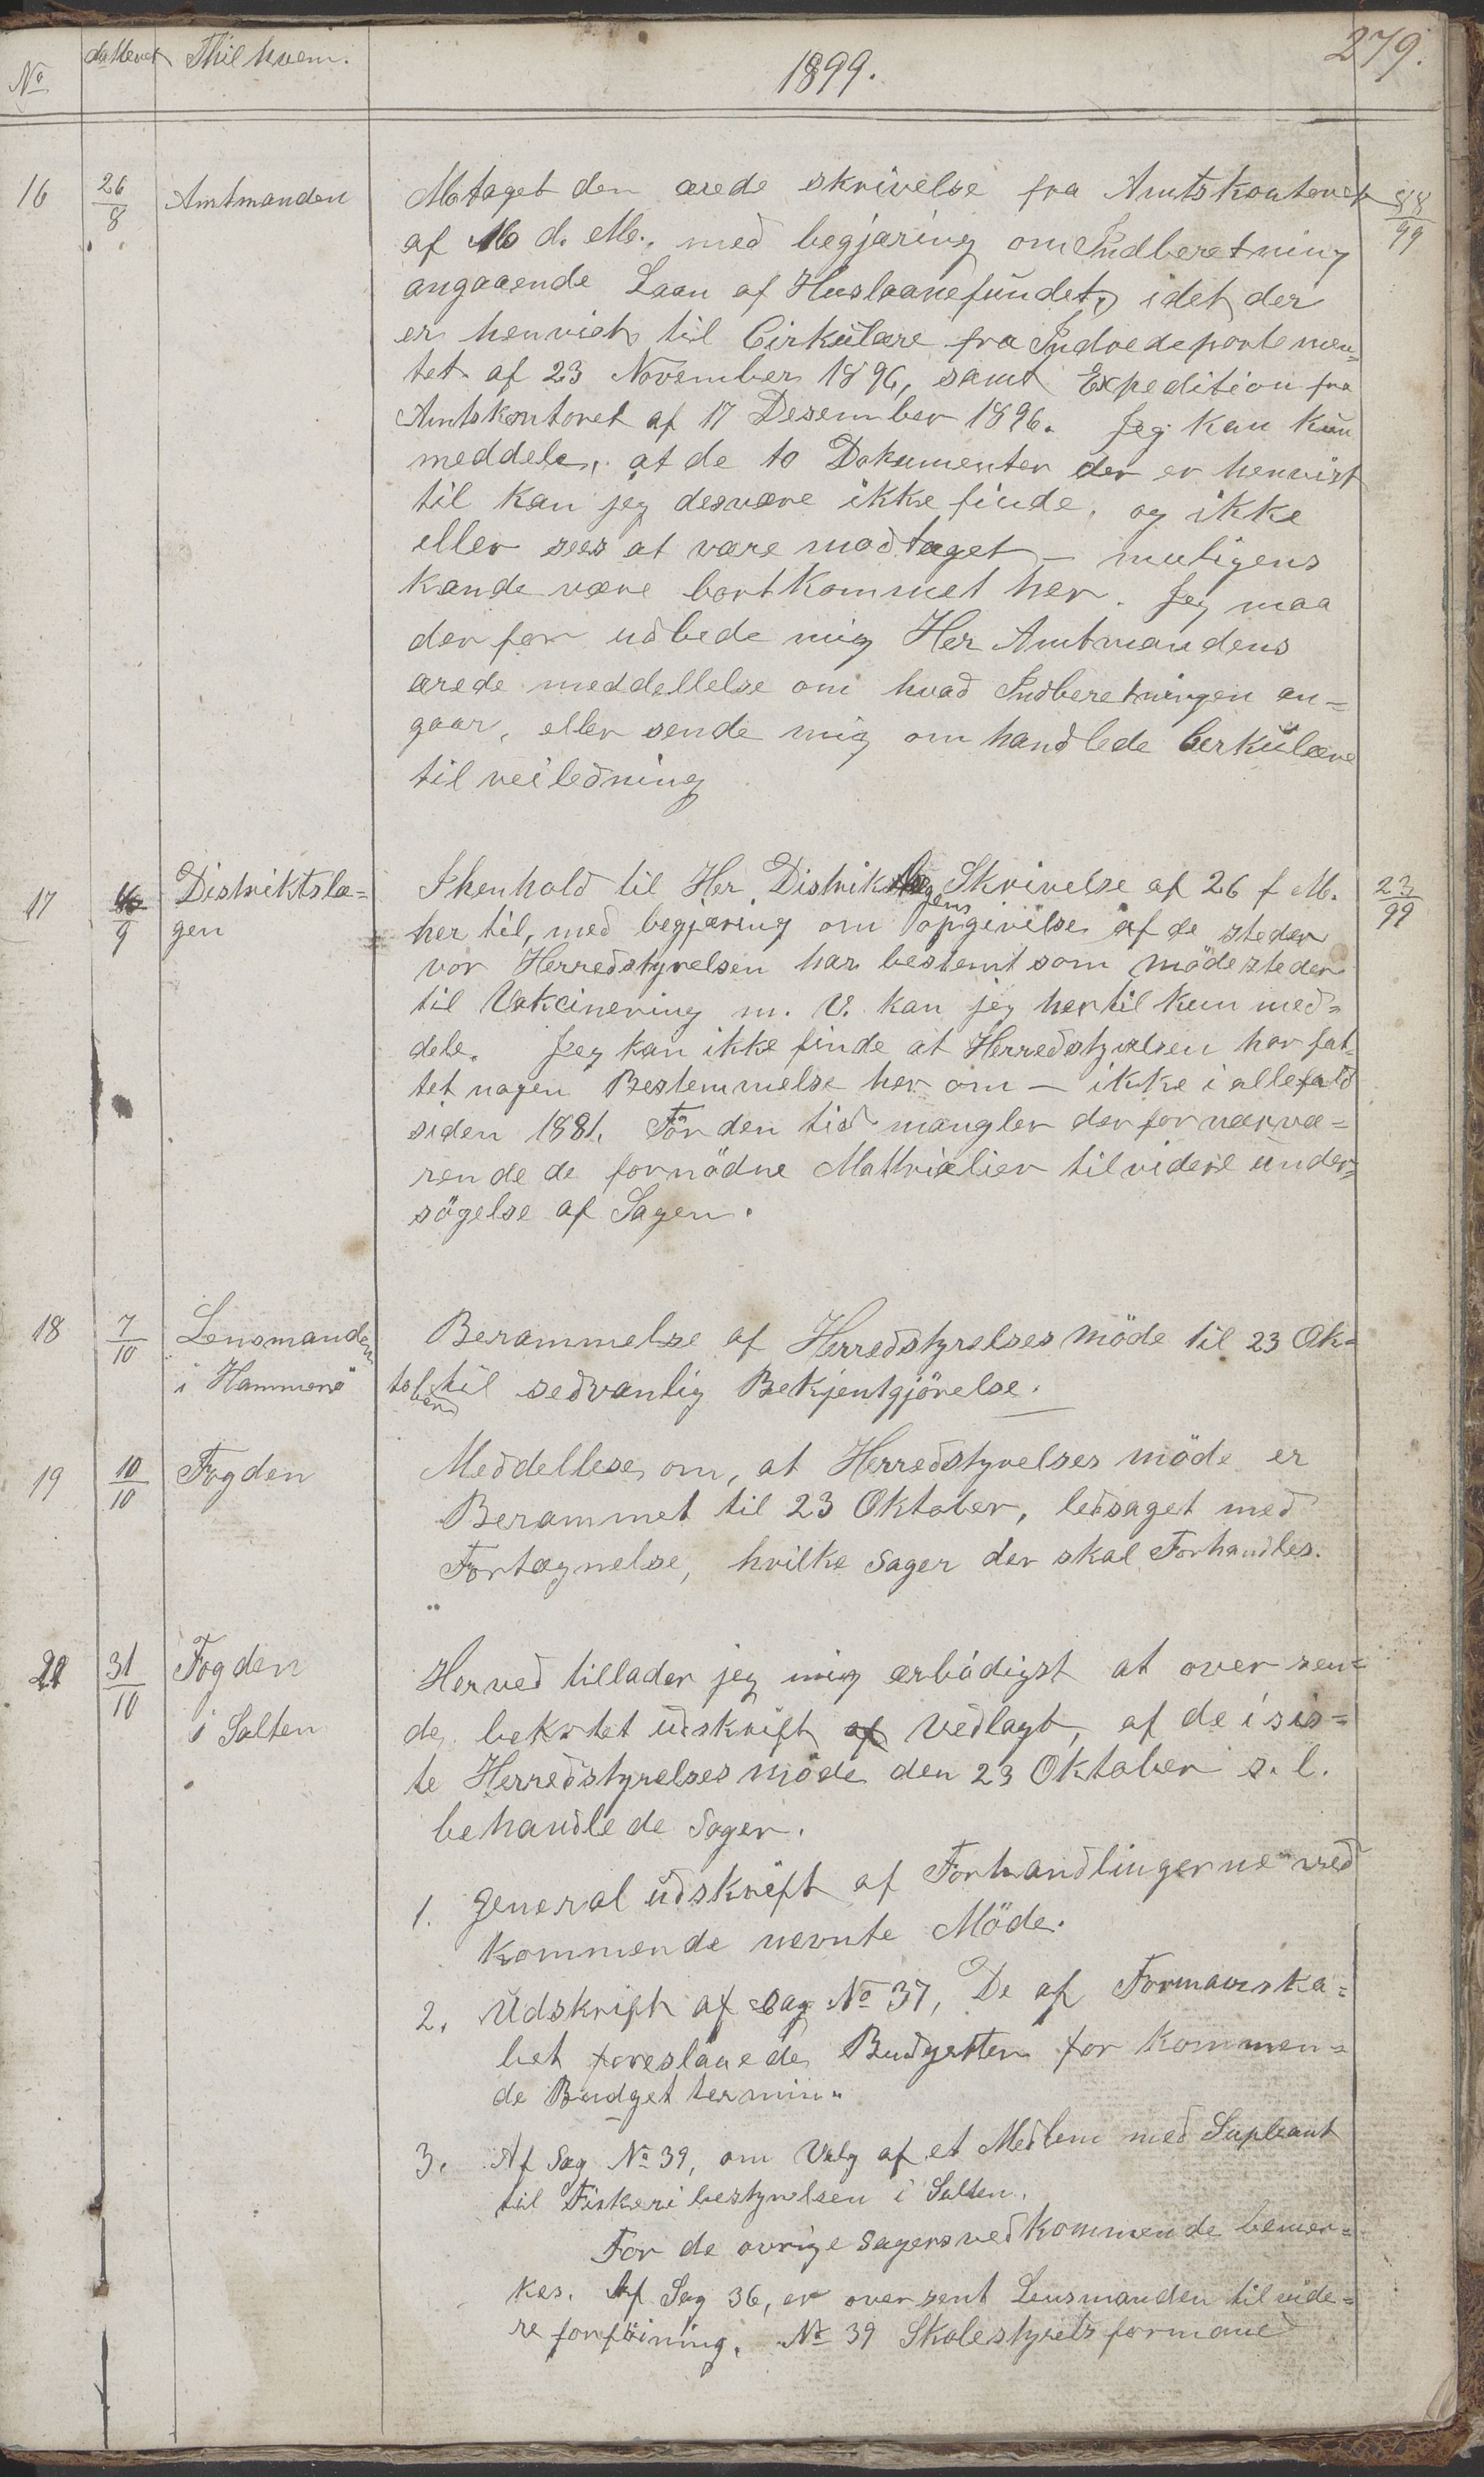 279.
No datteret Thil hvem. 1899.
16 26/8 Amtmanden
Motaget den ærede skrivelse fra Amtskontoret 88/99
af 16 d. Me., med begjæring om Indberetning
angaaende Laan af Huslaanefundet, idet der
er henvist til Cirkulære fra Indredepartemen=
tet af 23 November 1896, samt Expedition fra
Amtskontoret af 17 Desember 1896. Jeg kan kun
meddele, at de to Dokumenter der er henvist
til kan jeg desvære ikke finde, og ikke
eller sees at være modtaget – muligens
kande være bortkommet her. Jeg maa
der for udbede mig Her Amtmandens
ærede meddellelse om hvad Indberetningen an=
gaar, eller sende mig om handlede Cerkulære
til veiledning
17 /9 Distriktslæ=
gen
I henhold til Her Distriktslægens Skrivelse af 26 f M. 23/99
her til, med begjæring om opgivelse af de steder
vor Herredstyrelsen har bestemt som mödesteder
til Vakcinering m. V. kan jeg hertil kun med=
dele. Jeg kan ikke finde at Herredstyrelsen har fat=
tet nogen Bestemmelse her om – ikke i allefald
siden 1881. För den tid mangler der for nærvæ=
rende de fornödne Mattrialier til videre under=
sögelse af Sagen.
18 7/10 Lensmanden
i Hammerö
Berammelse af Herredstyrelses möde til 23 Ok=
tober til sedvanlig Bekjentgjörelse.
19 10/10 Fogden
Meddellese om, at Herredstyrelses möde er
Berammet til 23 Oktober, ledsaget med
Fortegnelse, hvilke Sager der skal Forhandles.
31/10 Fogden
i Salten
Herved tillader jeg mig ærbödigst at over sen=
de bekrtet udskrift af vedlagt, af de i sis=
te Herredstyrelses möde den 23 Oktober s. l.
behandlede Sager.
1. General udskrift af Forhandlingerne ved
kommende nevnte Möde.
2. Udskrift af Sag No 37, De af Formanska=
bet foreslaaede Budgetter for kommen=
de Budget termin.
3. Af Sag No 39, om Valg af et Medlem med Supleant
til Fiskeribestyrelsen i Salten.
For de ovrige Sagers vedkommende bemer=
kes. Af Sag 36, er over sent Lensmanden til vide=
re forföining. No 39 Skolestyrets formand